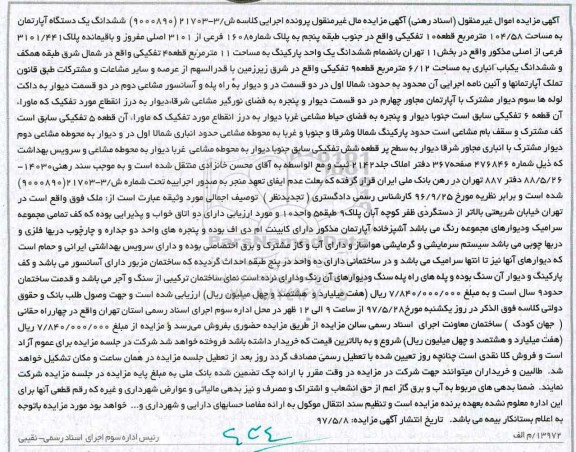 آگهی مزایده اموال غیرمنقول (اسناد رهنی) آگهی مزایده مال غیرمنقول پرونده اجرایی کلاسه ش/۳-۲۱۷۰۳ (۹۰۰۰۸۹۰) ششدانگ یک دستگاه آپارتمان
به مساحت ۱۰۴/۵۸ مترمربع قطعه۱۰ تفکیکی واقع در جنوب طبقه پنجم به پلاک شماره۱۶۰۸ فرعی از ۳۱۰۱ اصلی مفروز و باقیمانده پلاک۳۱۰۱/۴۴۱
فرعی از اصلی مذکور واقع در بخش۱۱ تهران بانضمام ششدانگ یک واحد پارکینگ به مساحت ۱۱ مترمربع قطعه۴ تفکیکی واقع در شمال شرق طبقه همکف
و ششدانگ یکباب انباری به مساحت ۶/۱۲ مترمربع قطعه۹ تفکیکی واقع در شرق زیرزمین با قدرالسهم از عرصه و سایر مشاعات و مشترکات طبق قانون
تملک آپارتمانها و آئین نامه اجرایی آن محدود به حدود: شمالا اول در دو قسمت در و دیوار به راه پله و آسانسور مشاعی دوم در دو قسمت دیوار به داکت
لوله ها سوم دیوار مشترک با آپارتمان مجاور چهارم در دو قسمت دیوار و پنجره به فضای نورگیر مشاعی شرقا،دیوار به درز انقطاع مورد تفکیک که ماوراء
آن قطعه ۶ تفکیکی سابق است جنوبا دیوار و پنجره به فضای حیاط مشاعی غربا دیوار به درز انقطاع مورد تفکیک که ماوراء آن، قطعه ۵ تفکیکی سابق است
کف مشترک و سقف بام مشاعی است حدود پارکینگ شمالا وشرقا و جنوبا و غربا به محوطه مشاعی حدود انباری شمالا اول در و دیوار به محوطه مشاعی دوم
دیوار مشترک با انباری مجاور شرقا دیوار به سطح پر قطعه شش تفکیکی سابق جنوبا دیوار به محوطه مشاعی غربا دیوار به محوطه مشاعی و سرویس بهداشت
که ذیل شماره ۴۷۶۸۴۶ صفحه۳۶۷ دفتر املاک جلد۲۱۴۲ ثبت ومع الواسطه به آقای محسن خانزادی منتقل شده است و به موجب سند رهنی۱۴۰۳۰-
۸۸/۵/۲۶ دفتر ۸۸۷ تهران در رهن بانک ملی ایران قرار گرفته که بعلت عدم ایفای تعهد منجر به صدور اجراییه تحت شماره ش/۳-۲۱۷۰۳ (۹۰۰۰۸۹۰)
شده است و برابر نظریه مورخ ۹۶/۹/۲۵ کارشناس رسمی دادگستری (تجدیدنظر) توصیف اجمالی مورد وثیقه عبارت است از: ملک فوق واقع است در
تهران خیابان شریعتی بالاتر از دستگردی ظفر کوچه آبان پلاک۹ طبقه۵ واحد۱۰ و مورد ارزیابی دارای دو اتاق خواب و پذیرایی بوده که کف تمامی مجموعه
سرامیک ودیوارهای مجموعه رنگ می باشد آشپزخانه آپارتمان مذکور دارای کابینت ام دی اف بوده و پنجره های واحد دو جداره و چارچوب دربها فلزی و
دربها چوبی می باشد سیستم سرمایشی و گرمایشی هواساز و دارای آب و گاز مشترک و برق اختصاصی بوده و دارای سرویس بهداشتی ایرانی و حمام است
که دیوارهای آنها نیز تا انتها سرامیک می باشد و در ساختمانی دارای ده واحد در پنج طبقه احداث گردیده که ساختمان مزبور دارای آسانسور می باشد و کف
پارکینگ و دیوار آن سنگ بوده و پله های راه پله سنگ ودیوارهای آن رنگ ودارای نرده است نمای ساختمان ترکیبی از سنگ و آجر می باشد و قدمت ساختمان
حدود۹ سال است و به مبلغ ۷/۸۴۰/۰۰۰/۰۰۰ ریال (هفت میلیارد و هشتصد و چهل میلیون ریال) ارزیابی شده است و جهت وصول طلب بانک و حقوق
دولتی کلاسه فوق الذکر در روز یکشنبه مورخ۹۷/۵/۲۸ از ساعت ۹ الی ۱۲ ظهر در محل اداره سوم اجرای اسناد رسمی استان تهران واقع در چهارراه حقانی
( جهان کودک ) ساختمان معاونت اجرای اسناد رسمی سالن مزایده از طریق مزایده حضوری بفروش می‌رسد و مزایده از مبلغ ۷/۸۴۰/۰۰۰/۰۰۰ ریال
(هفت میلیارد و هشتصد و چهل میلیون ریال) شروع و به بالاترین قیمت که خریدار داشته باشد فروخته خواهد شد شرکت در جلسه مزایده برای عموم آزاد
است و فروش کلا نقدی است چنانچه روز تعیین شده با تعطیل رسمی مصادف گردد روز بعد از تعطیل جلسه مزایده در همان ساعت و مکان تشکیل خواهد
شد. طالبین و خریداران میتوانند جهت شرکت در مزایده در وقت مقرر با ارائه چک تضمین شده بانک ملی به مبلغ پایه مزایده در جلسه مزایده شرکت
نمایند. ضمنا بدهی های مربوط به آب و برق گاز اعم از حق انشعاب و اشتراک و مصرف و نیز بدهی مالیاتی و عوارض شهرداری و غیره که رقم قطعی آنها برای
این اداره معلوم نشده بعهده برنده مزایده است و تنظیم سند انتقال موکول به ارائه مفاصا حسابهای دارایی و شهرداری و... خواهد بود مورد مزایده باتوجه
به اعلام بستانکار بیمه می باشد. تاریخ انتشار آگهی مزایده: ۹۷/۵/۸
۱۳۹۷۲/م الف
رئیس اداره سوم اجرای اسناد رسمی- نقیبی